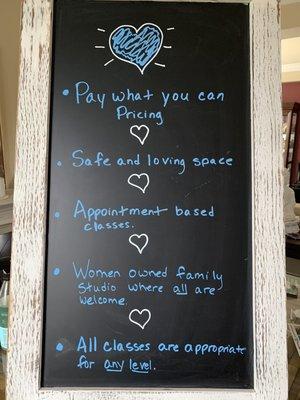 • Pay what you can
Pricing
• Safe and loving space
• Appointment based
classes.
• Women owned family
Studio where all are
welcome.
• All classes are appropriate
for any level.